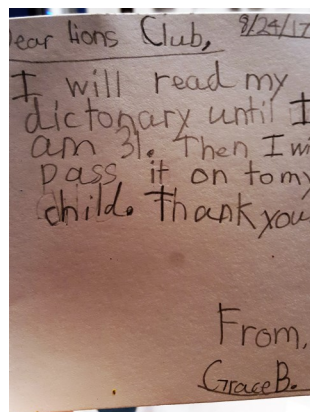 ear Lions Club, 8/24/17
I will read my
dictonary until I
am 31. Then I wi
pass it on to my
child. Thank you
From,
Grace B.